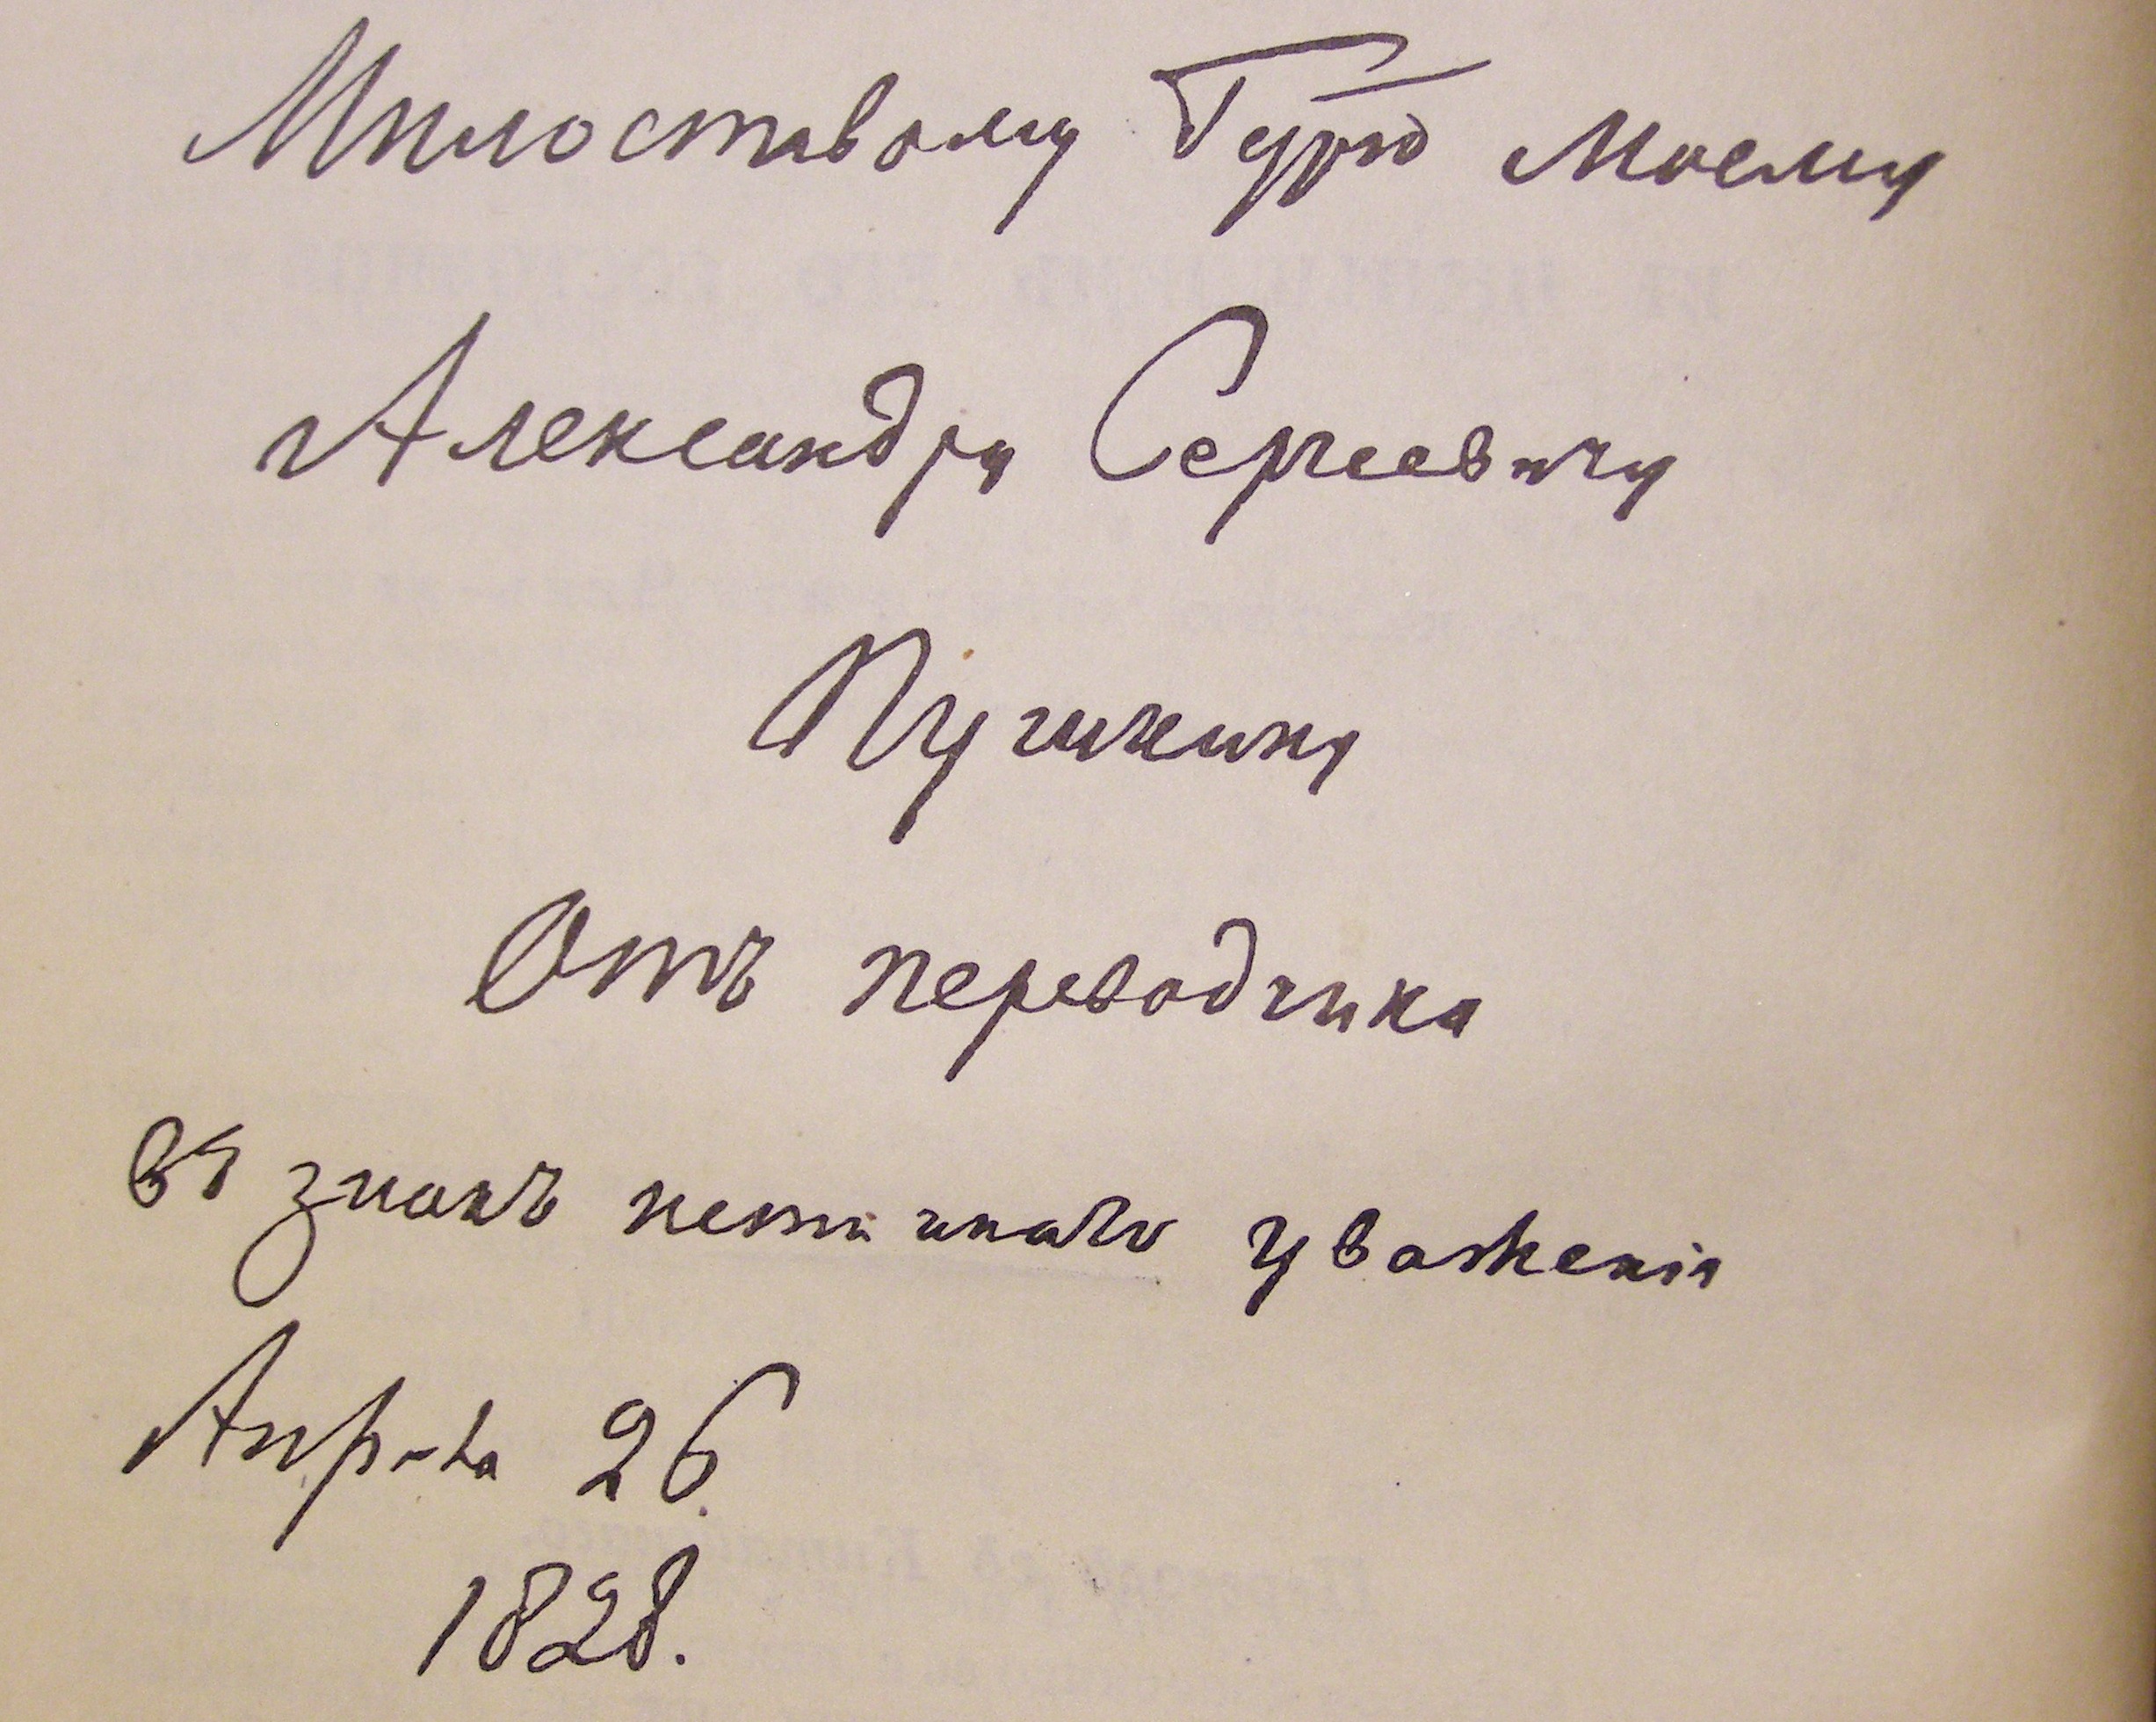 Милостивому Гдрю моему
Александру Сергеевичу
Пушкину
Отъ переводчика
въ знакъ истиннаго уваженія
Апрѣля 26.
1828.